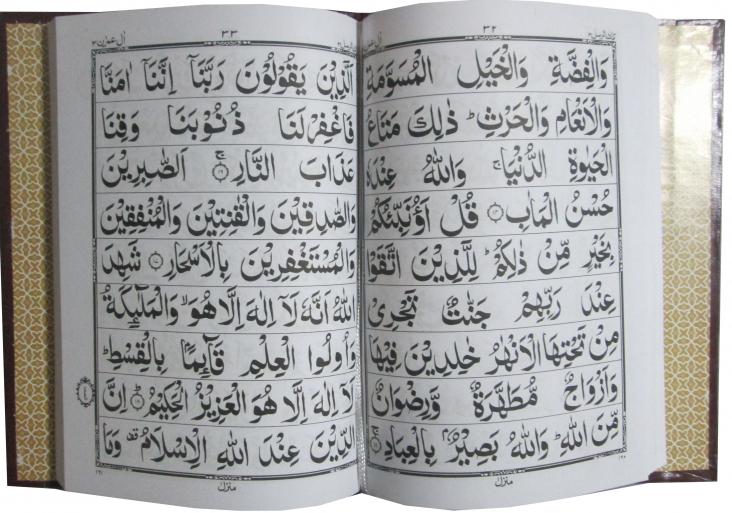 ٣٢
وَالْفِضَّةِ وَالْخَيْلِ الْمُسَوَّمَةِ
وَالْاَنْعَامِ وَالْحَرْثِ ؕ ذٰلِكَ مَتَاعُ
الْحَيٰوةِ الدُّنْيَا ۚ وَاللّٰهُ عِنْدَهٗ
حُسْنُ الْمَاٰبِ ۝۱۴ قُلْ اَؤُنَبِّئُكُمْ
بِخَيْرٍ مِّنْ ذٰلِكُمْ ؕ لِلَّذِيْنَ اتَّقَوْا
عِنْدَ رَبِّهِمْ جَنّٰتٌ تَجْرِيْ
مِنْ تَحْتِهَا الْاَنْهٰرُ خٰلِدِيْنَ فِيْهَا
وَاَزْوَاجٌ مُّطَهَّرَةٌ وَّرِضْوَانٌ
مِّنَ اللّٰهِ ؕ وَاللّٰهُ بَصِيْرٌۢ بِالْعِبَادِ ۝۱۵
منزل
اٰل عمرٰن ٣
٣٣
اَلَّذِيْنَ يَقُوْلُوْنَ رَبَّنَاۤ اِنَّنَاۤ اٰمَنَّا
فَاغْفِرْ لَنَا ذُنُوْبَنَا وَقِنَا
عَذَابَ النَّارِ ۝۱۶ۚ اَلصّٰبِرِيْنَ
وَالصّٰدِقِيْنَ وَالْقٰنِتِيْنَ وَالْمُنْفِقِيْنَ
وَالْمُسْتَغْفِرِيْنَ بِالْاَسْحَارِ ۝۱۷ شَهِدَ
اللّٰهُ اَنَّهٗ لَاۤ اِلٰهَ اِلَّا هُوَ ۙ وَالْمَلٰٓئِكَةُ
وَاُولُوا الْعِلْمِ قَآئِمًۢا بِالْقِسْطِ ؕ
لَاۤ اِلٰهَ اِلَّا هُوَ الْعَزِيْزُ الْحَكِيْمُ ۝۱۸ؕ اِنَّ
الدِّيْنَ عِنْدَ اللّٰهِ الْاِسْلَامُ ۫ وَمَا
منزل